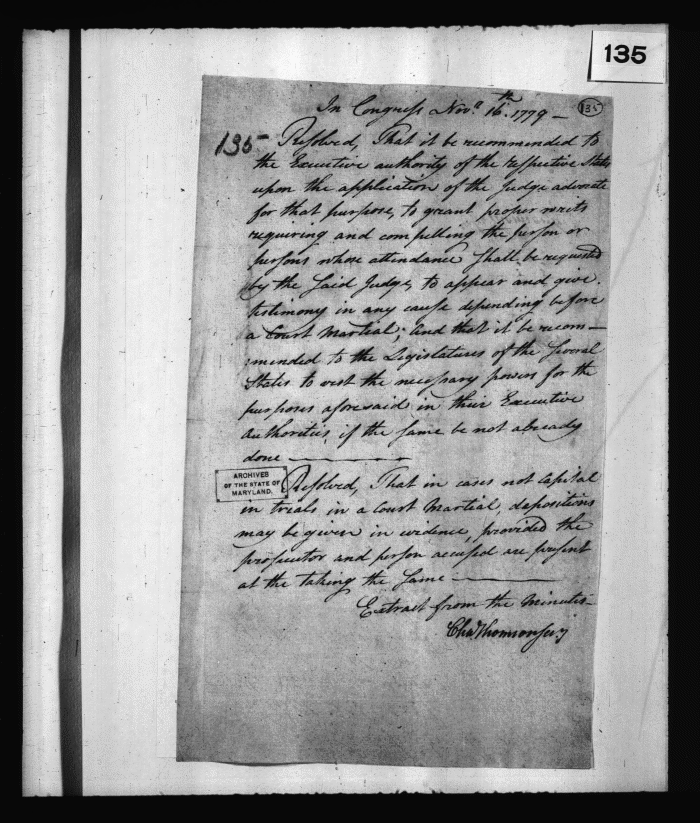 135
In Congress Novr. 16th. 1779 —
135
135 Resolved, That it be recommended to
the Executive authority of the respective States
upon the application of the Judge advocate
for that purpose, to grant proper writs
requiring and compelling the person or
persons whose attendance shall be requested
by the said Judge, to appear and give
testimony in any cause depending before
a Court Martial; and that it be recom—
mended to the Legislatures of the several
States to vest the necessary powers for the
purposes aforesaid in their Executive
authorities, if the same be not already
done
ARCHIVES
OF THE STATE OF
MARYLAND.
Resolved, That in cases not capital
in trials in a Court Martial, depositions
may be given in evidence, provided the
prosecutor and person accused are present
at the taking the same
Extract from the Minutes
Chas Thomson secy